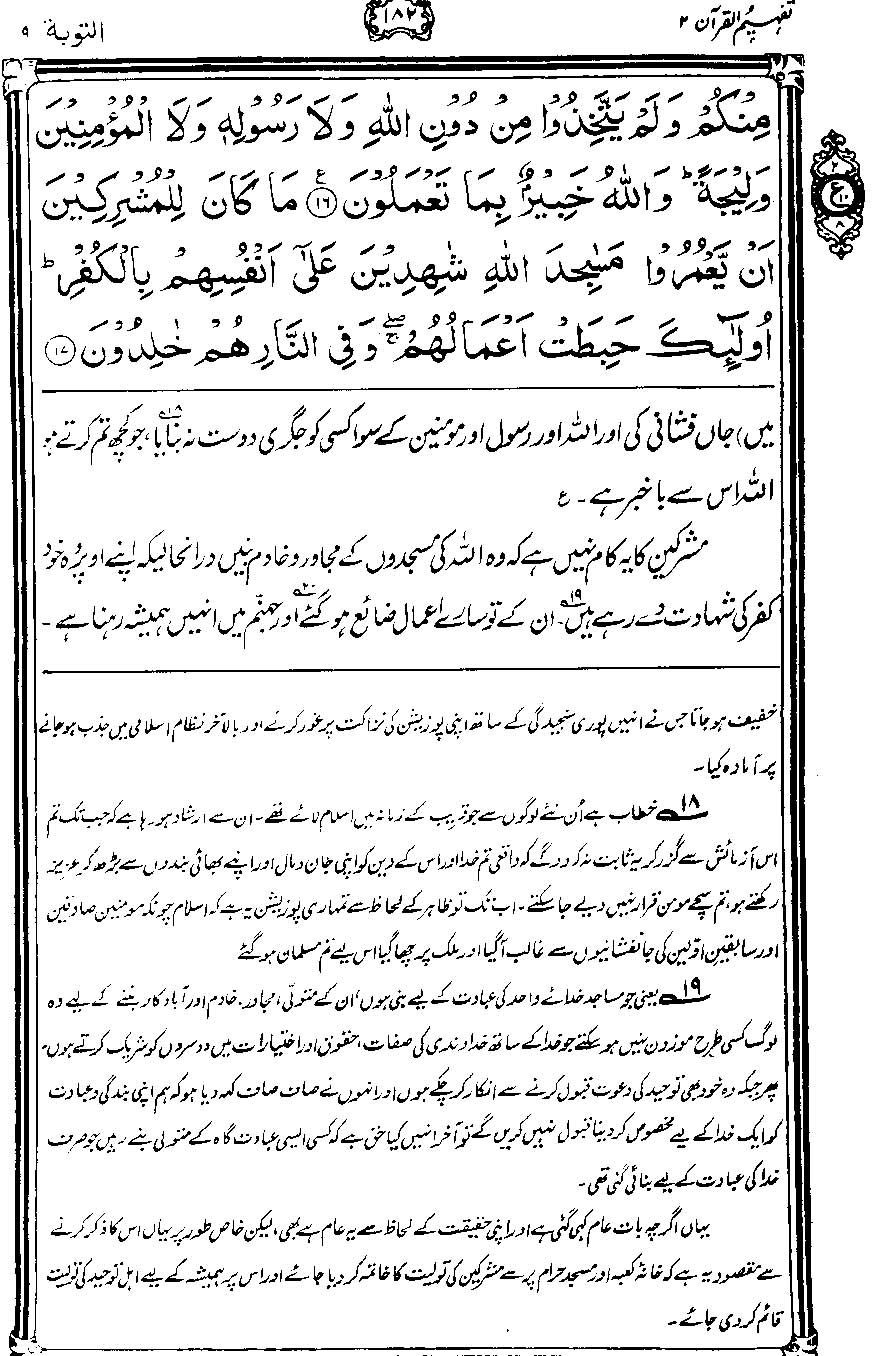 تفہیم القرآن ۲
۱۸۲
التوبة ۹
مِنْكُمْ وَلَمْ يَتَّخِذُوْا مِنْ دُوْنِ اللّٰهِ وَلَا رَسُوْلِهٖ وَلَا الْمُؤْمِنِيْنَ
وَلِيْجَةً ؕ وَاللّٰهُ خَبِيْرٌۢ بِمَا تَعْمَلُوْنَ ۧ۝۱۶ مَا كَانَ لِلْمُشْرِكِيْنَ
اَنْ يَّعْمُرُوْا مَسٰجِدَ اللّٰهِ شٰهِدِيْنَ عَلٰٓى اَنْفُسِهِمْ بِالْكُفْرِ ؕ
اُولٰٓئِكَ حَبِطَتْ اَعْمَالُهُمْ ۖۚ وَفِي النَّارِ هُمْ خٰلِدُوْنَ ۝۱۷
۲
ع
۱۰
۸
میں) جاں فشانی کی اور اللہ اور رسول اور مومنین کے سوا کسی کو جگری دوست نہ بنایا،۱۸ جو کچھ تم کرتے ہو
اللہ اس سے باخبر ہے۔ ع
مشرکین کا یہ کام نہیں ہے کہ وہ اللہ کی مسجدوں کے مجاور و خادم بنیں درانحالیکہ اپنے اوپر وہ خود
کفر کی شہادت دے رہے ہیں۔۱۹ ان کے تو سارے اعمال ضائع ہو گئے۲۰ اور جہنّم میں انہیں ہمیشہ رہنا ہے۔
خفیف ہو جاتا جس نے انہیں پوری سنجیدگی کے ساتھ اپنی پوزیشن کی نزاکت پر غور کرنے اور بالآخر نظام اسلامی میں جذب ہو جانے
پر آمادہ کیا۔
۱۸ خطاب ہے اُن نئے لوگوں سے جو قریب کے زمانہ میں اسلام لائے تھے۔ ان سے ارشاد ہو رہا ہے کہ جب تک تم
اس آزمائش سے گزر کر یہ ثابت نہ کر دو گے کہ واقعی تم خدا اور اس کے دین کو اپنی جان و مال اور اپنے بھائی بندوں سے بڑھ کر عزیز
رکھتے ہو، تم سچے مومن قرار نہیں دیے جا سکتے۔ اب تک تو ظاہر کے لحاظ سے تمہاری پوزیشن یہ ہے کہ اسلام چونکہ مومنین صادقین
اور سابقین اوّلین کی جانفشانیوں سے غالب آ گیا اور ملک پر چھا گیا اس لیے تم مسلمان ہو گئے
۱۹ یعنی جو مساجد خدائے واحد کی عبادت کے لیے بنی ہوں، ان کے متولّی، مجاور، خادم اور آباد کار بننے کے لیے وہ
لوگ کسی طرح موزوں نہیں ہو سکتے جو خدا کے ساتھ خداوندی کی صفات، حقوق اور اختیارات میں دوسروں کو شریک کرتے ہوں۔
پھر جبکہ وہ خود بھی توحید کی دعوت قبول کرنے سے انکار کر چکے ہوں اور انہوں نے صاف صاف کہہ دیا ہو کہ ہم اپنی بندگی و عبادت
کو ایک خدا کے لیے مخصوص کر دینا قبول نہیں کریں گے تو آخر انہیں کیا حق ہے کہ کسی ایسی عبادت گاہ کے متولی بنے رہیں جو صرف
خدا کی عبادت کے لیے بنائی گئی تھی۔
یہاں اگرچہ بات عام کہی گئی ہے اور اپنی حقیقت کے لحاظ سے یہ عام ہے بھی، لیکن خاص طور پر یہاں اس کا ذکر کرنے
سے مقصود یہ ہے کہ خانہ کعبہ اور مسجد حرام پر سے مشرکین کی تولیت کا خاتمہ کر دیا جائے اور اس پر ہمیشہ کے لیے اہل توحید کی تولیت
قائم کر دی جائے۔